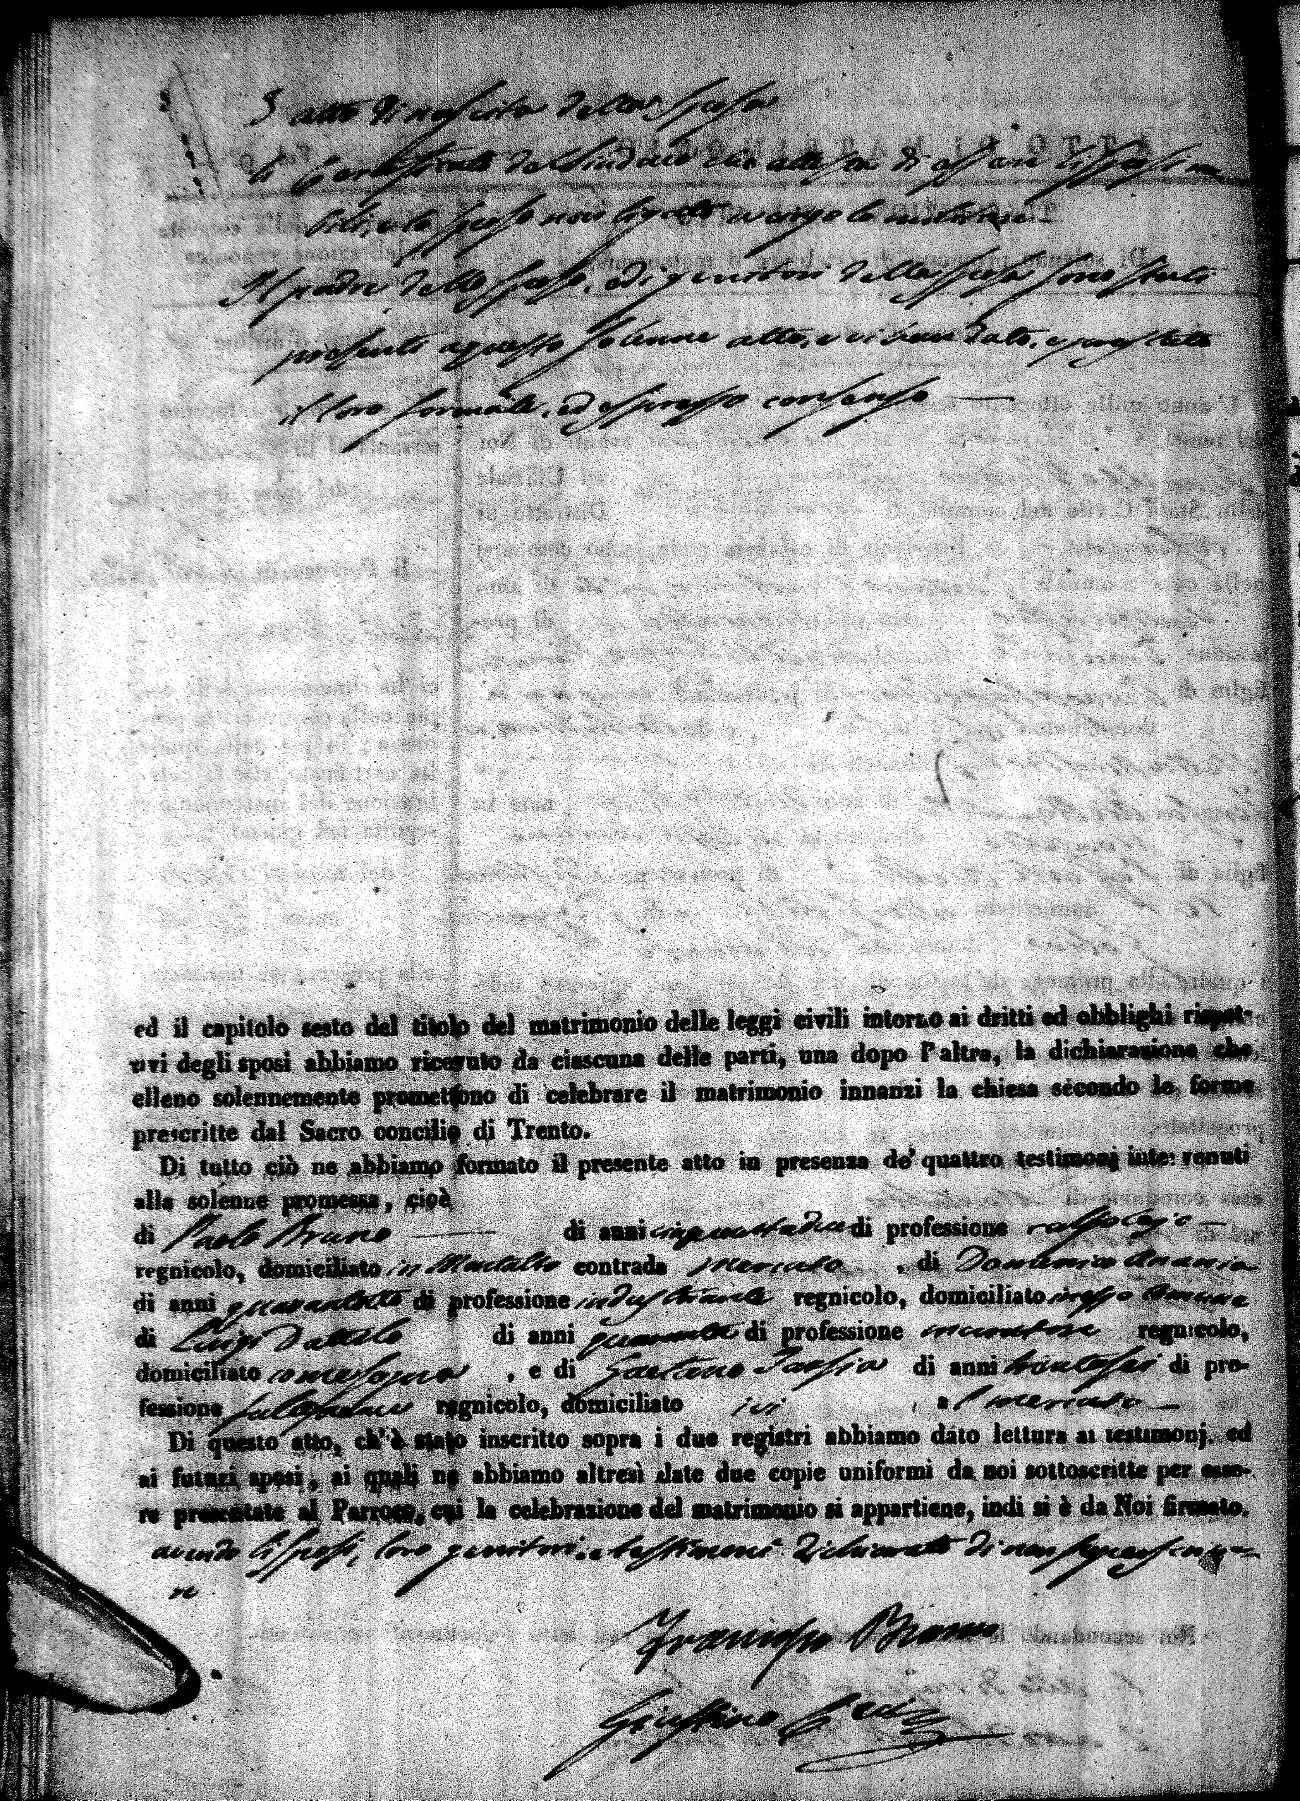 3 atto di nascita della sposa
li Certificati del Sindaco che attestano di essere li sposi
lo sposo non ligato a vincolo
Il padre dello sposo, ed i genitori della sposa sono stati
presenti a questo solenne atto, e vi han dato, e prestato
il loro formale, ed espresso consenso —
ed il capitolo sesto del titolo del matrimonio delle leggi civili intorno ai dritti ed obblighi rispet-
tivi degli sposi abbiamo ricevuto da ciascuna delle parti, una dopo l'altra, la dichiarazione che,
elleno solennemente promettono di celebrare il matrimonio innanzi la chiesa secondo le forme
prescritte dal Sacro concilio di Trento.
Di tutto ciò ne abbiamo formato il presente atto in presenza de' quattro testimonj intervenuti
alla solenne promessa, cioè
di Paolo Bruno — di anni cinquantadue di professione —
regnicolo, domiciliato in Montalto contrada , di Domenico Anania
di anni quarantotto di professione industriante regnicolo, domiciliato
di Luigi Dattilo di anni quaranta di professione regnicolo,
domiciliato come sopra , e di Gaetano di anni trentasei di pro-
fessione falegname regnicolo, domiciliato ivi , a —
Di questo atto, ch'è stato inscritto sopra i due registri abbiamo dato lettura ai testimonj, ed
ai futuri sposi, ai quali ne abbiamo altresì date due copie uniformi da noi sottoscritte per esse-
re presentate al Parroco, cui la celebrazione del matrimonio si appartiene, indi si è da Noi firmato.
avendo li sposi, loro genitori, e testimoni dichiarato di non saper scrive-
re
Francesco Bruno
Giustino